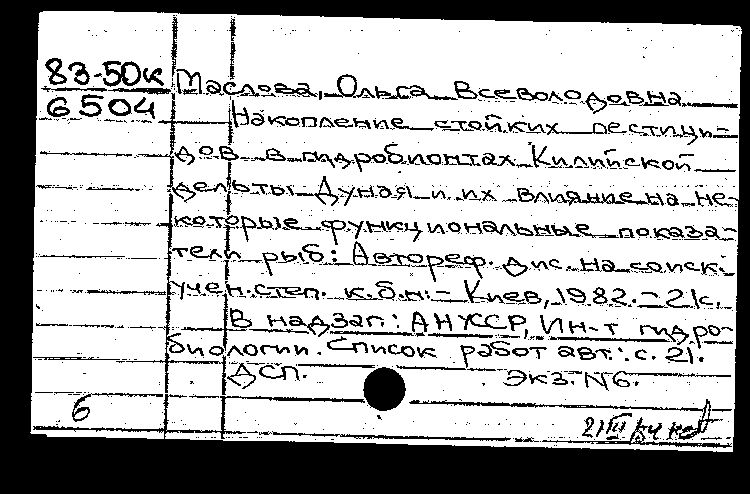 83-50к Маслова, Ольга Всеволодовна
6504 Накопление стойких пестици-
дов в гидробионтах Килийской
дельты Дуная и их влияние на не-
которые функциональные показа-
тели рыб: Автореф. дис. на соиск.
учен. степ. к.б.н: - Киев, 1982. - 21с.
В надзаг.: АН УССР, Ин-т гидро-
биологии. Список работ авт.: с. 21.
ДСП. Экз. N6.
6
21/III